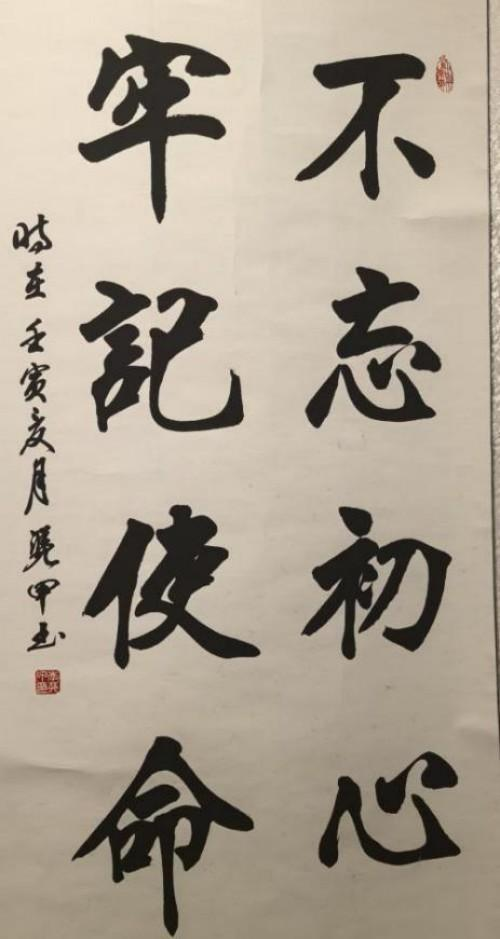 不忘初心
牢記使命
時在壬寅夏月